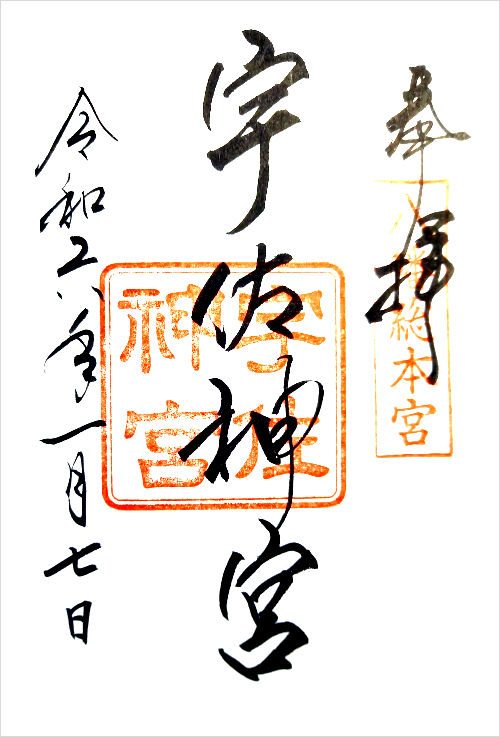 奉拝
八幡総本宮
宇佐神宮
宇佐神宮
令和六年一月七日